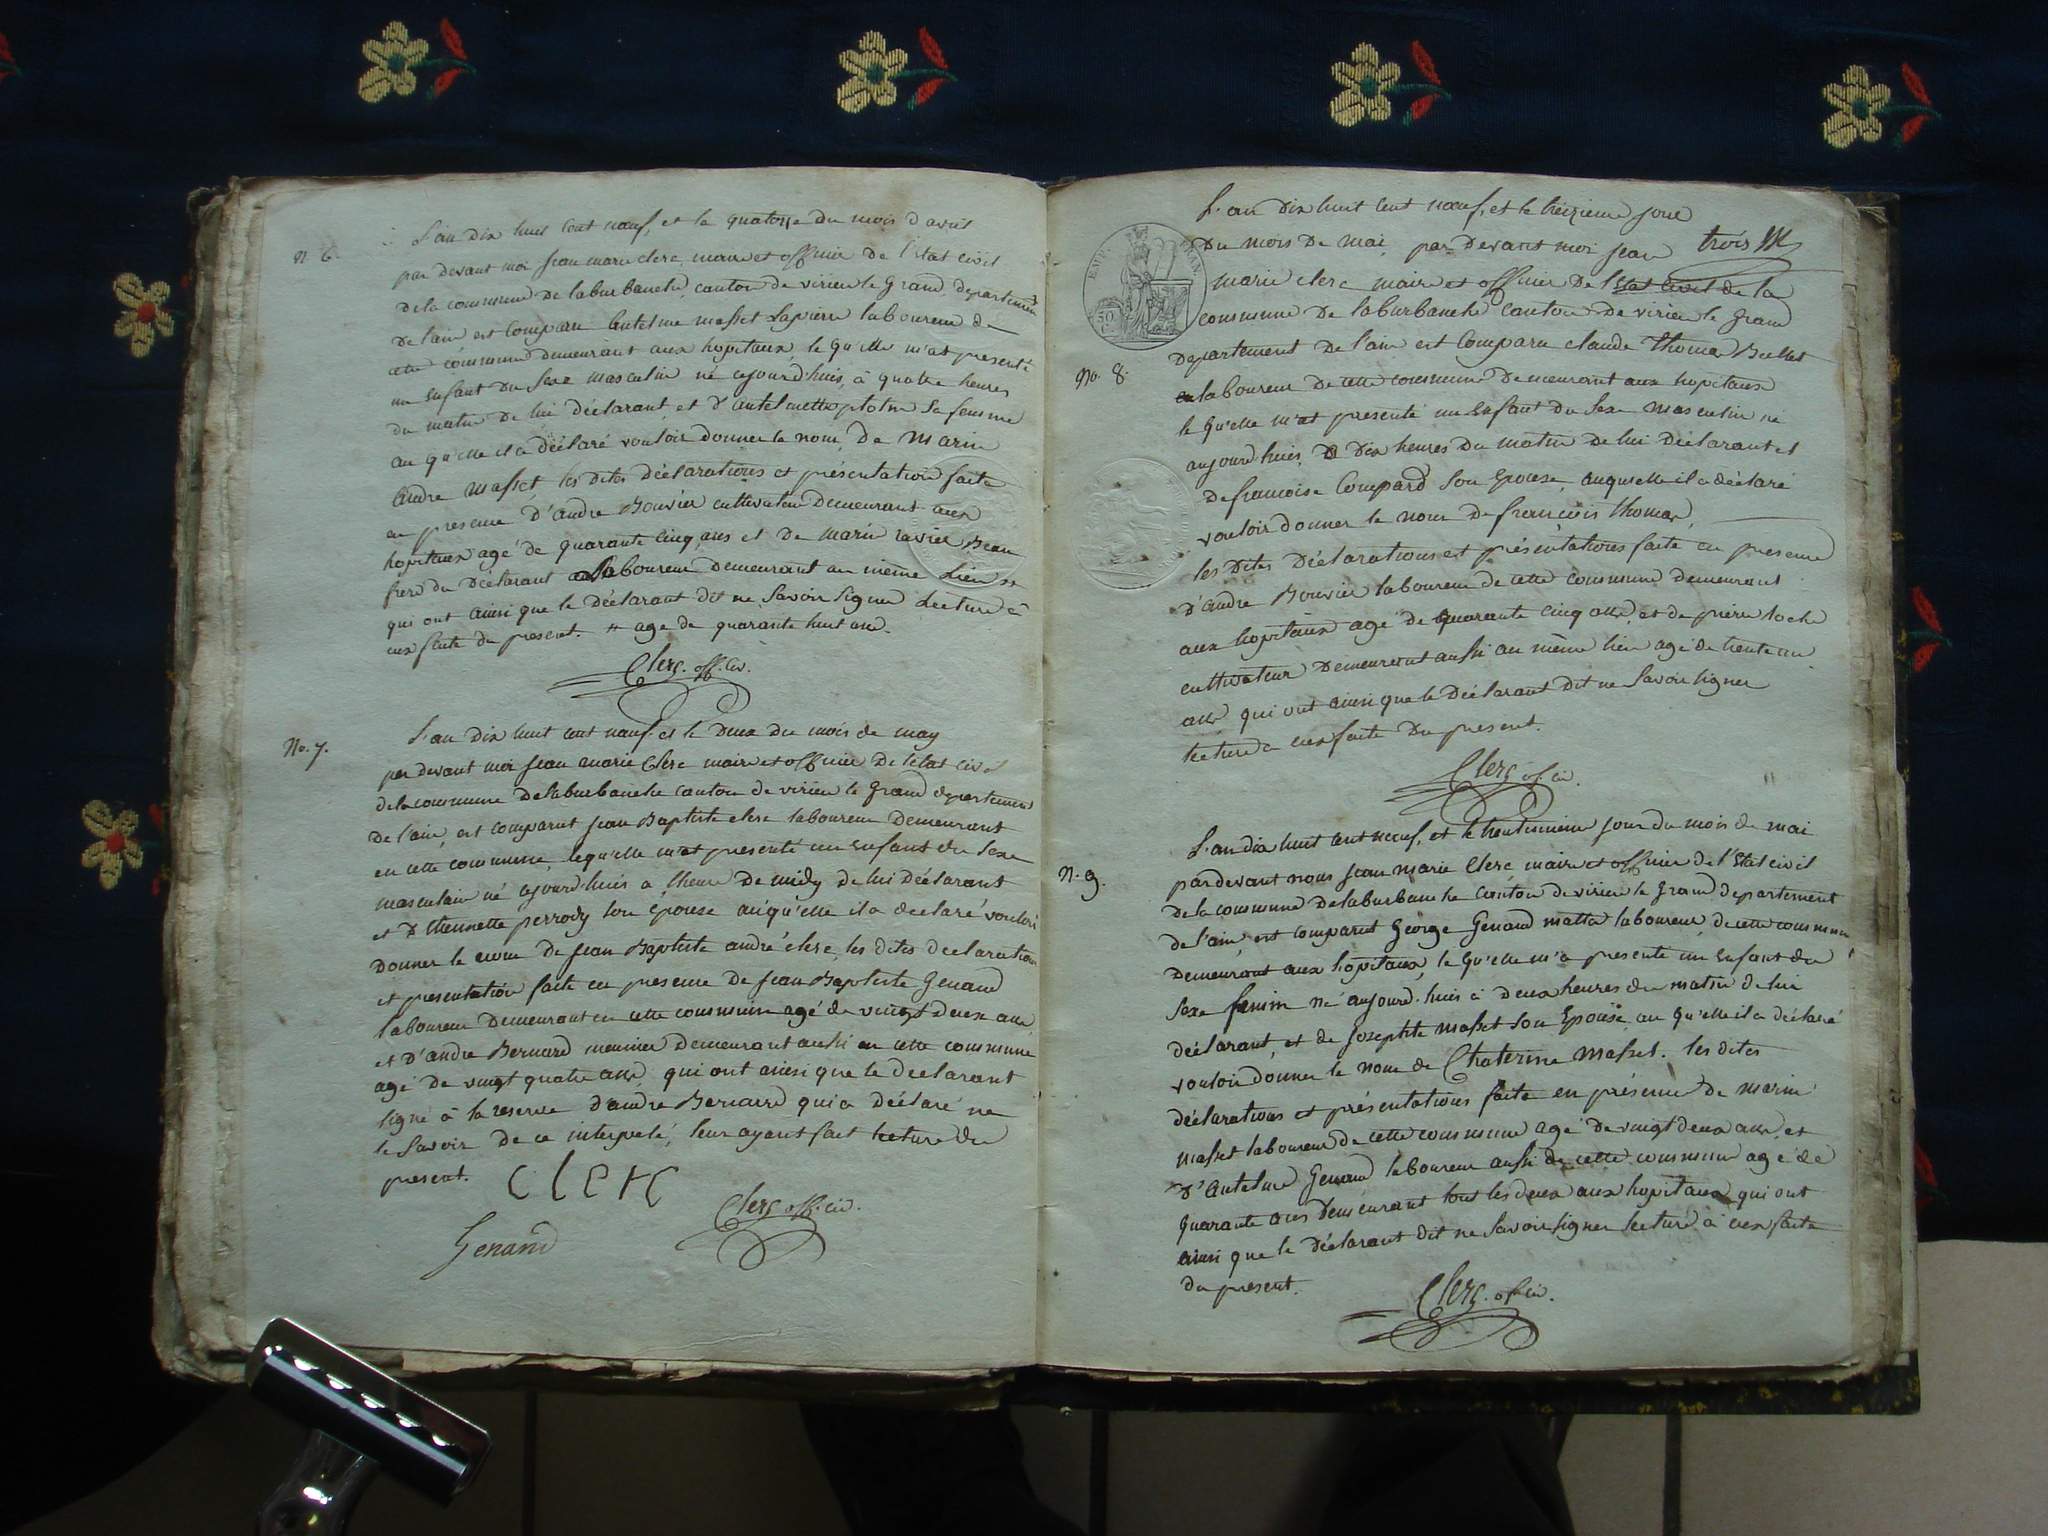 N. 6.
L'an dix huit cent neuf, et le quatorze du mois d'avril
par devant moi jean marie clerc, maire et officier de l'état civil
de la commune de laburbanche, canton de virieu le grand, departement
de l'ain est comparu antelme masset Lapierre laboureur de
cette commune demeurant aux hopitaux, le qu'elle m'at presenté
un enfant du sexe masculin né cejourd'huis, à quatre heures
du matin de lui déclarant, et d'antelmette sa femme
au qu'elle il a déclaré vouloir donner le nom, de marin
andre masset, les dites déclarations et présentation faite
en presence d'andre Bouvier cultivateur demeurant aux
hopitaux agé de quarante cinq ans et de marin ravier Beau
frere du déclarant laboureur demeurant au même Lieu #
qui ont ainsi que le déclarant dit ne savoir signer Lecture à
eux faite du present. # age de quarante huit ans.
Clerc. off. civ.
No. 7.
L'an dix huit cent neuf et le deux du mois de may
par devant moi jean marie Clerc maire et officier de l'état civil
de la commune de laburbanche canton de virieu le grand departement
de l'ain, est comparut jean Baptiste clerc laboureur demeurant
en cette commune, lequ'elle m'at presenté un enfant du sexe
masculain né cejourd'huis a l'heure de midy de lui déclarant
et d'thennette perrody son épouse auqu'elle il a declaré vouloir
donner le nom de jean Baptiste andré clerc, les dites declaration
et presentation faite en presence de jean Baptiste Genand
laboureur demeurant en cette commune agé de vingt deux ans,
et d'andre Bernard meunier demeurant aussi en cette commune
agé de vingt quatre ans, qui ont ainsi que le declarant
signé à la reserve d'andre Bernard qui a déclaré ne
le savoir de ce interpelé, leur ayant fait lecture du
present.
Clerc
Clerc off. civ.
Genand
EMP. FRAN.
50
L'an dix huit cent neuf, et le treizieme jour
du mois de mai, par devant moi jean trois
marie clerc maire et officier de l'état civil de la
commune de laburbanche canton de virieu le grand
No. 8.
departement de l'ain est comparu claude thomas Bullet
laboureur de cette commune demeurant aux hopitaux
le qu'elle m'at presenté un enfant du sexe masculin né
aujourd'huis, à dix heures du matin de lui déclarant et
de francoise Compard son epouse, auquelle il a déclaré
vouloir donner le nom de francois thomas,
les dites déclarations et présentations faite en presence
d'andre Bouvier laboureur de cette commune demeurant
aux hopitaux agé de quarante cinq ans, et de pierre loche
cultivateur demeurant aussi au même lieu agé de trente un
ans qui ont ainsi que le déclarant dit ne savoir signer
lecture a eux faite du present.
Clerc of. civ.
L'an dix huit cent neuf, et le trentunieme jour du mois de mai
N. 9.
pardevant nous jean marie Clerc, maire et officier de l'état civil
de la commune de laburbanche canton de virieu le grand departement
de l'ain, est comparut George Genand matta laboureur, de cette commune
demeurant aux hopitaux, le qu'elle m'a presenté un enfant du
sexe feminin né aujourd'huis à deux heures du matin de lui
déclarant, et de josephte masset son épouse, au qu'elle il a déclaré
vouloir donner le nom de Chaterine masset. les dites
déclarations et présentations faite en présence de marin
masset laboureur de cette commune agé de vingt deux ans, et
d'antelme Genand laboureur aussi de cette commune agé de
quarante ans demeurant tous les deux aux hopitaux qui ont
ainsi que le déclarant dit ne savoir signer lecture à eux faite
du present.
Clerc. of. civ.